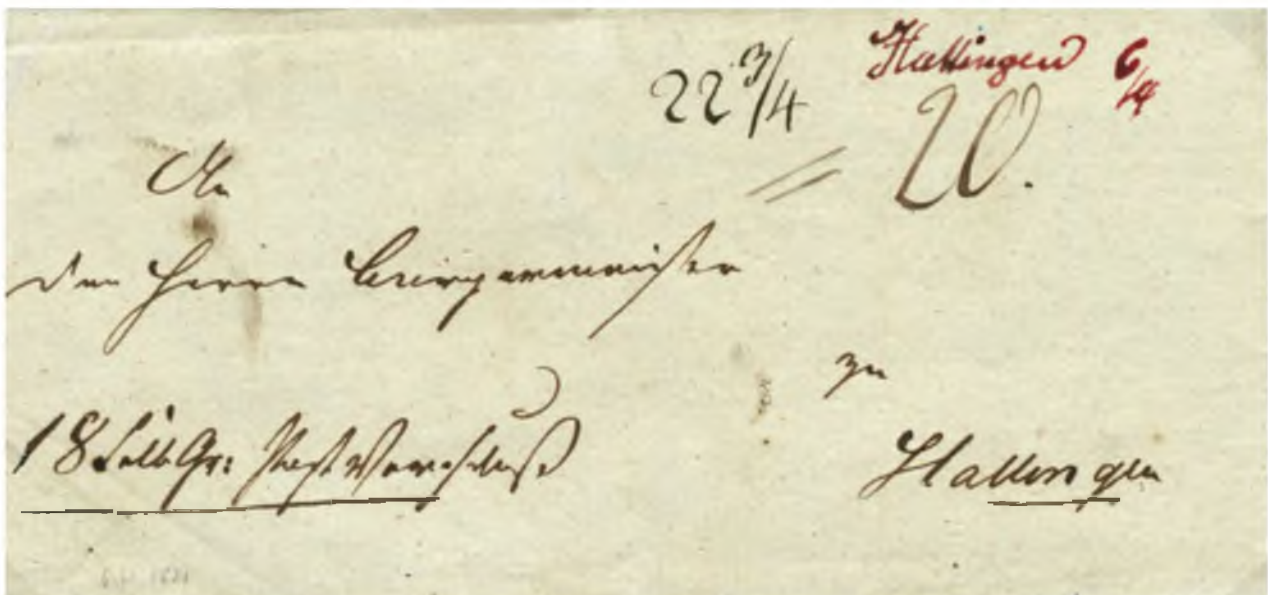 Hattingen 6/4
22 3/4
20.
An
den Herrn Bürgermeister
zu
18 Silb Gr: Post Vorschuß
Hattingen